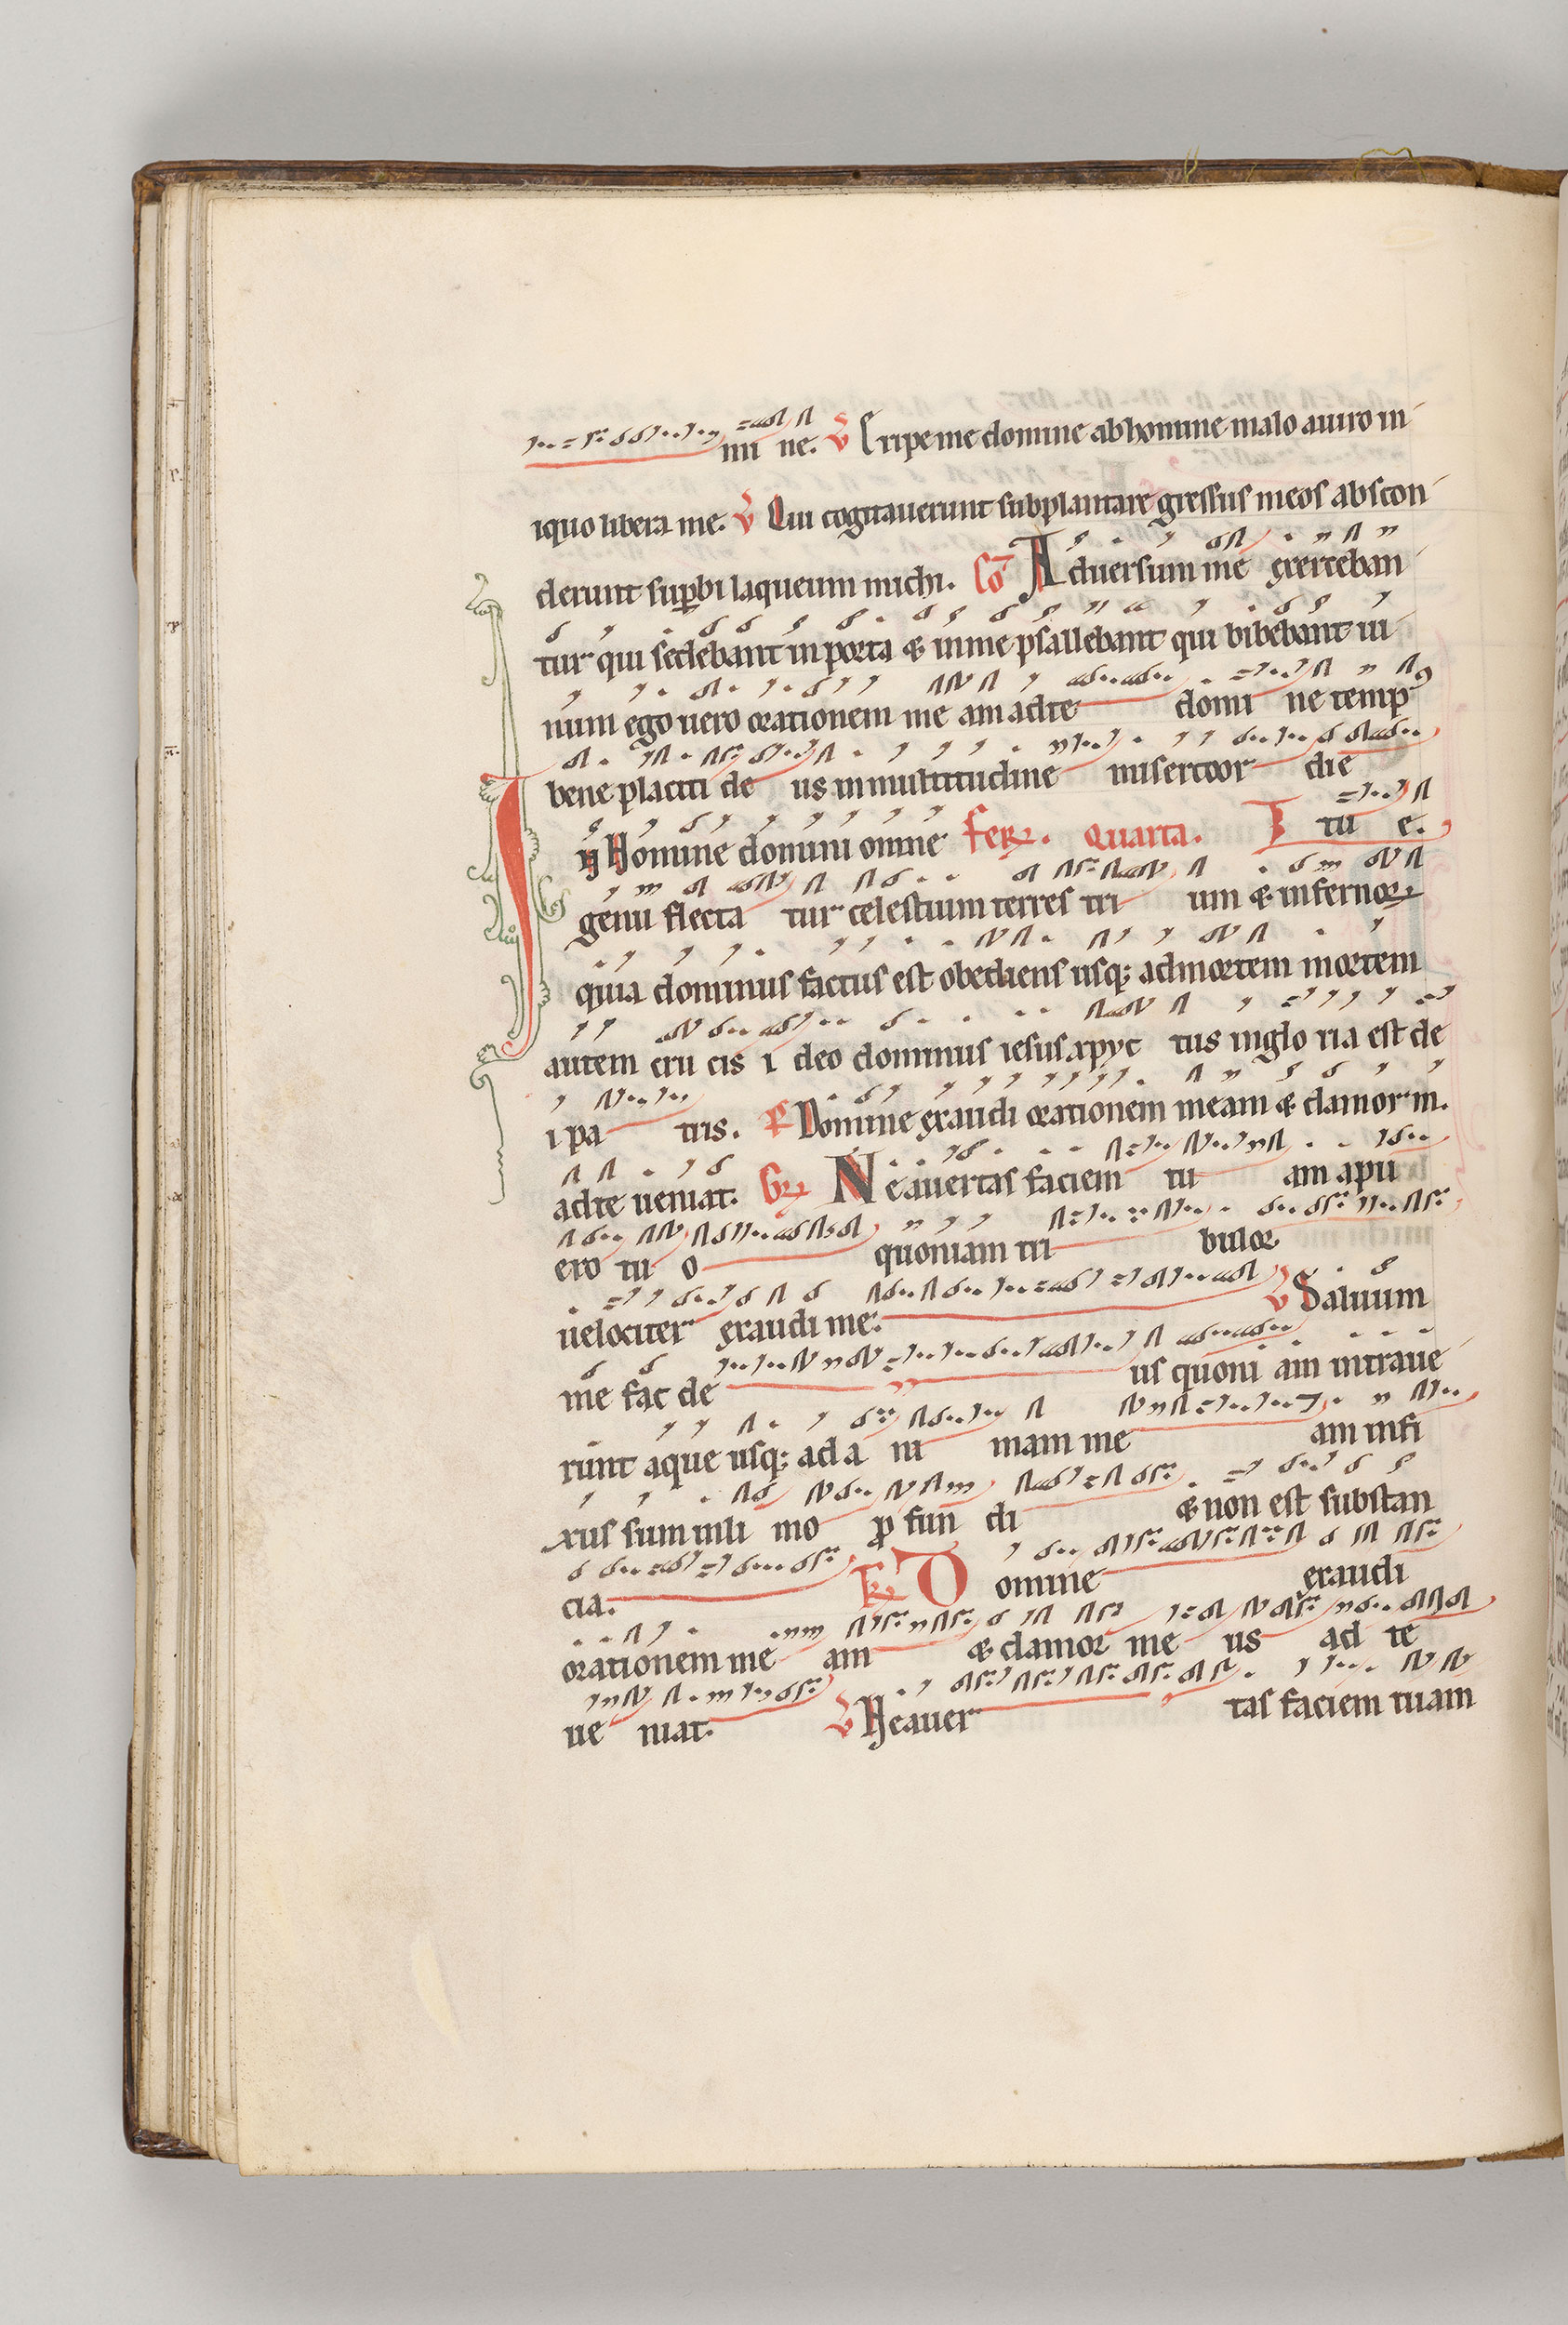 mi ne. V Eripe me domine ab homine malo a uiro in
iquo libera me. V Qui cogitauerunt subplantare gressus meos abscon
derunt supbi laqueum michi. Co Aduersum me exerceban
tur qui sedebant in porta & in me psallebant qui bibebant ui
num ego uero orationem me am ad te domi ne temp9
bene placiti de us in multitudine misericor die
In nomine domini omne Feria. Quarta. T tu e.
genu flecta tur celestium terres tri um & infernor
quia dominus factus est obediens usq; ad mortem mortem
autem cru cis i deo dominus iesus apyc tus in glo ria est de
i pa tris. P Domine exaudi orationem meam & clamor m.
ad te ueniat. Gr Ne auertas faciem tu am a pu
ero tu o quoniam tri bulor
uelociter exaudi me. V Saluum
me fac de us quoni am intraue
runt aque usq; ad a ni mam me am infi
xus sum in li mo p fun di & non est substan
cia. Tr Domine exaudi
orationem me am & clamor me us ad te
ue niat. V Ne auer tas faciem tuam